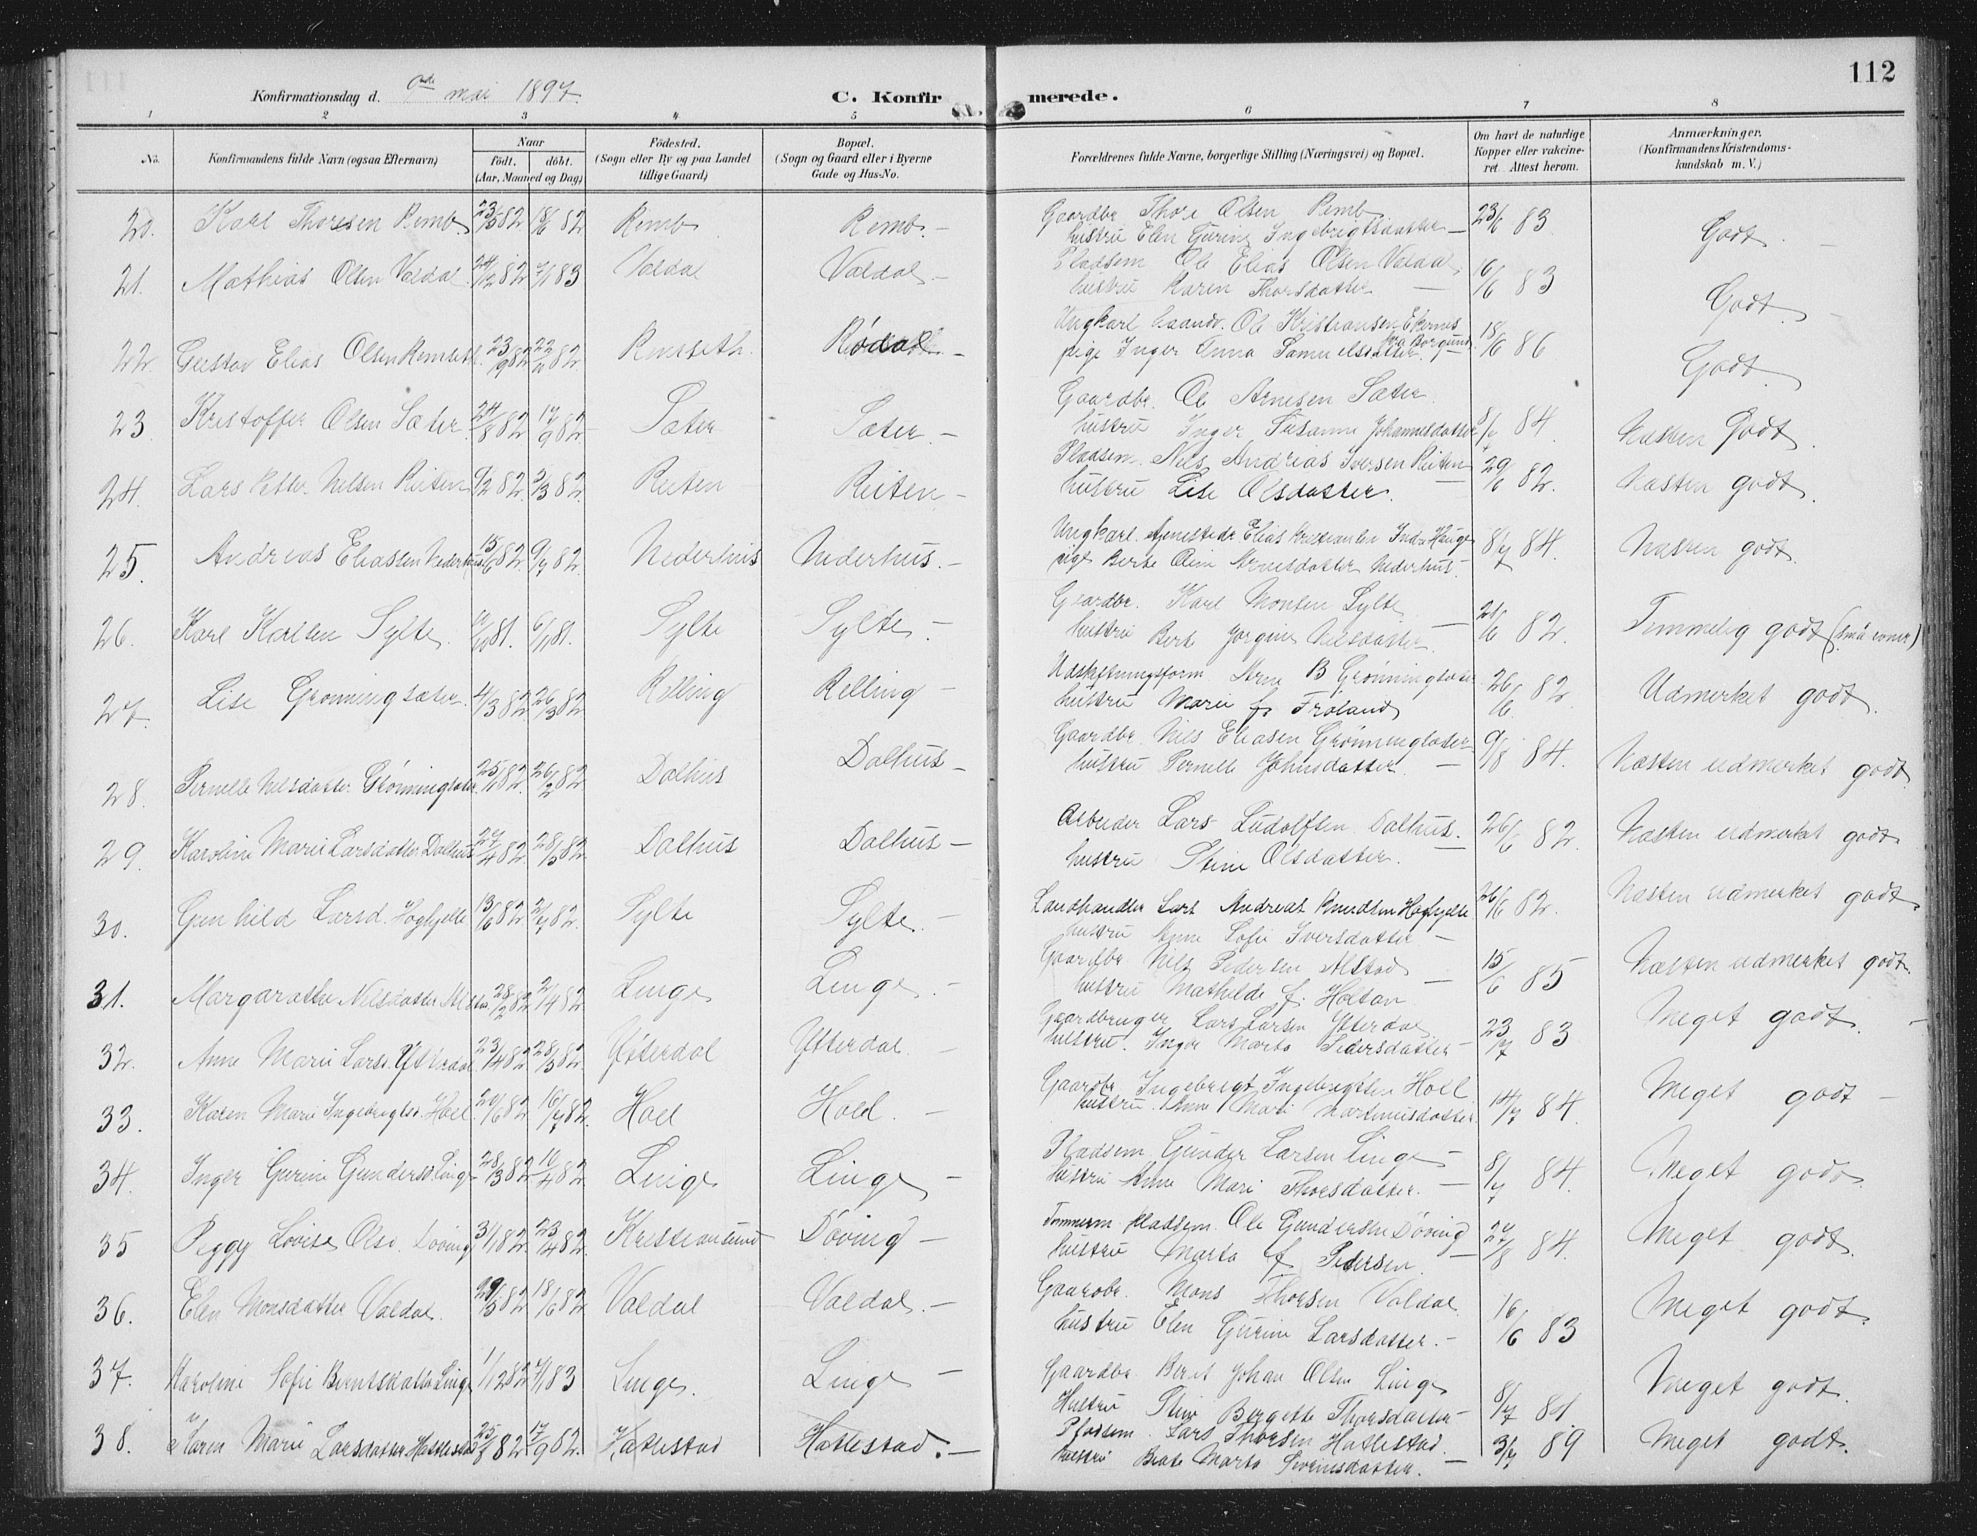 112
Konfirmationsdag d. mai 1897.
C. Konfirmerede.
1 2 3 4 5 6 7 8
No. Konfirmandens fulde Navn (ogsaa Efternavn) Naar født. døbt. (Aar, Maaned og Dag) Fødested. (Sogn eller By og paa Landet tillige Gaard) Bopæl. (Sogn og Gaard eller i Byerne Gade og Hus-No. Forældrenes fulde Navne, borgerlige Stilling (Næringsvei) og Bopæl. Om havt de naturlige Kopper eller vakcineret. Attest herom. Anmærkninger. (Konfirmandens Kristendomskundskab m. V.)
20. Karl Thoresen Remb. 23/5 82 18/6 82 Remb Remb. - Gaardbr. Thore Olsen Remb 23/6 83 Godt.
hustru Elen Gurine Ingebrigtsdatter -
21. Mathias Olsen Valdal 24/12 82 7/1 83 Valdal Valdal. - Pladsem. Ole Elias Olsen Valdal 16/6 83 Godt.
hustru Karen Thorsdatter -
22. Gustav Elias Olsen Remseth. 23/9 82 Remseth. Rødal - Ungkarl Ole Kristiansen Ekornes 18/6 86 Godt.
pige Inger Anna Samuelsdatter fra Borgund
23. Kristoffer Olsen Sæter. 24/8 82 17/9 82 Sæter Sæter. - Gaardbr. Ole Arnesen Sæter. 8/7 84. Næsten Godt.
hustru Inger Susanne Johannesdatter
24. Lars Petter Nilsen Reiten 82 82 Reiten Reiten - Pladsem. Nils Andreas Iversen Reiten 29/6 82. Næsten godt.
hustru Lise Olsdatter.
25. Andreas Eliassen Nederhus 15/6 82 9/7 82. Nederhus Nederhus. - Ungkarl Elias Kristiansen Indre Hauge 8/7 84. Næsten godt.
pige Berte Oline Arnesdatter Nederhus.
26. Karl Karlsen Sylte. 81. 81. Sylte Sylte. - Gaardbr. Karl Monsen Sylte 21/6 82. Temmelig godt (små evner)
hustru Berte Jorgine Nilsdatter
27. Lise Grønningsæter 4/3 82 26/3 82 Relling Relling - Udskiftningsform. Arne B Grønningsæter 26/6 82. Udmerket godt.
hustru Marie f. Frøland
28. Pernelle Nilsdatter Grønningsæter. 25/1 82. 26/2 82 Dalhus Dalhus - Gaardbr. Nils Eliasen Grønningsæter 9/8 84. Næsten udmerket godt
hustru Pernelle Johnsdatter. -
29. Karoline Marie Larsdatter Dalhus 27/4 82. 28/5 82. Dalhus Dalhus - Arbeider Lars Ludolfsen Dalhus. 26/6 82. Næsten udmerket godt
hustru Stine Olsdatter.
30. Gunhild Larsd. Høghjelle 13/6 82. 82. Sylte Sylte. - Landhandler Lars Andreas Knudsen Høghjelle 26/6 82. Næsten udmerket godt.
hustru Anne Sofie Iversdatter -
31. Margarethe Nilsdatter Alstad 28/2 82 2/4 82. Linge Linge. - Gaardbr. Nils Pedersen Alstad 15/6 85 Næsten udmerket godt.
hustru Mathilde f. Holtan
32. Anne Marie Larsd. Ytterdal 82 28/5 82. Ytterdal Ytterdal. - Gaardbruger Lars Larsen Ytterdal 23/7 83 Meget godt.
hustru. Inger Marta Pedersdatter -
33. Karen Marie Ingebrigtsd. Hoel 82 16/7 82. Hoel Hoel. - Gaardbr. Ingebrigt Ingebrigtsen Hoel 14/7 84. Meget godt -
hustru. Anne Mari Martinusdatter
34. Inger Gurine Gundersd. Linge 28/3 82 16/4 82. Linge Linge - Pladsem. Gunder Larsen Linge - 8/7 84. Meget godt.
hustru Anne Mari Thorsdatter. -
35 Peggy Lovise Olsd. Døving 31/1 82. 23/4 82. Kristiansund Døving - Tømmerm. pladsem. Ole Gundersen Døving 27/8 84. Meget godt.
hustru Marta f. Pedersen
36. Elen Monsdatter Valdal. 29/5 82. 18/6 82. Valdal Valdal. - Gaardbr. Mons Thorsen Valdal 16/6 83 Meget godt.
hustru Elen Gurine Larsdatter. -
37. Karoline Sofie Berntsdatter Linge 1/12 82 7/1 83 Linge. Linge - Gaardbr. Bernt Johan Olsen Linge 8/7 84 Meget godt.
Hustru Stine Bergette Thorsdatter -
38. Karen Marie Larsdatter Hattestad 25/8 82. 17/9 82. Hattestad Hattestad. - Pladsem. Lars Thorsen Hattestad. 3/7 89 Meget godt.
hustru Beate Marta Severinsdatter. -